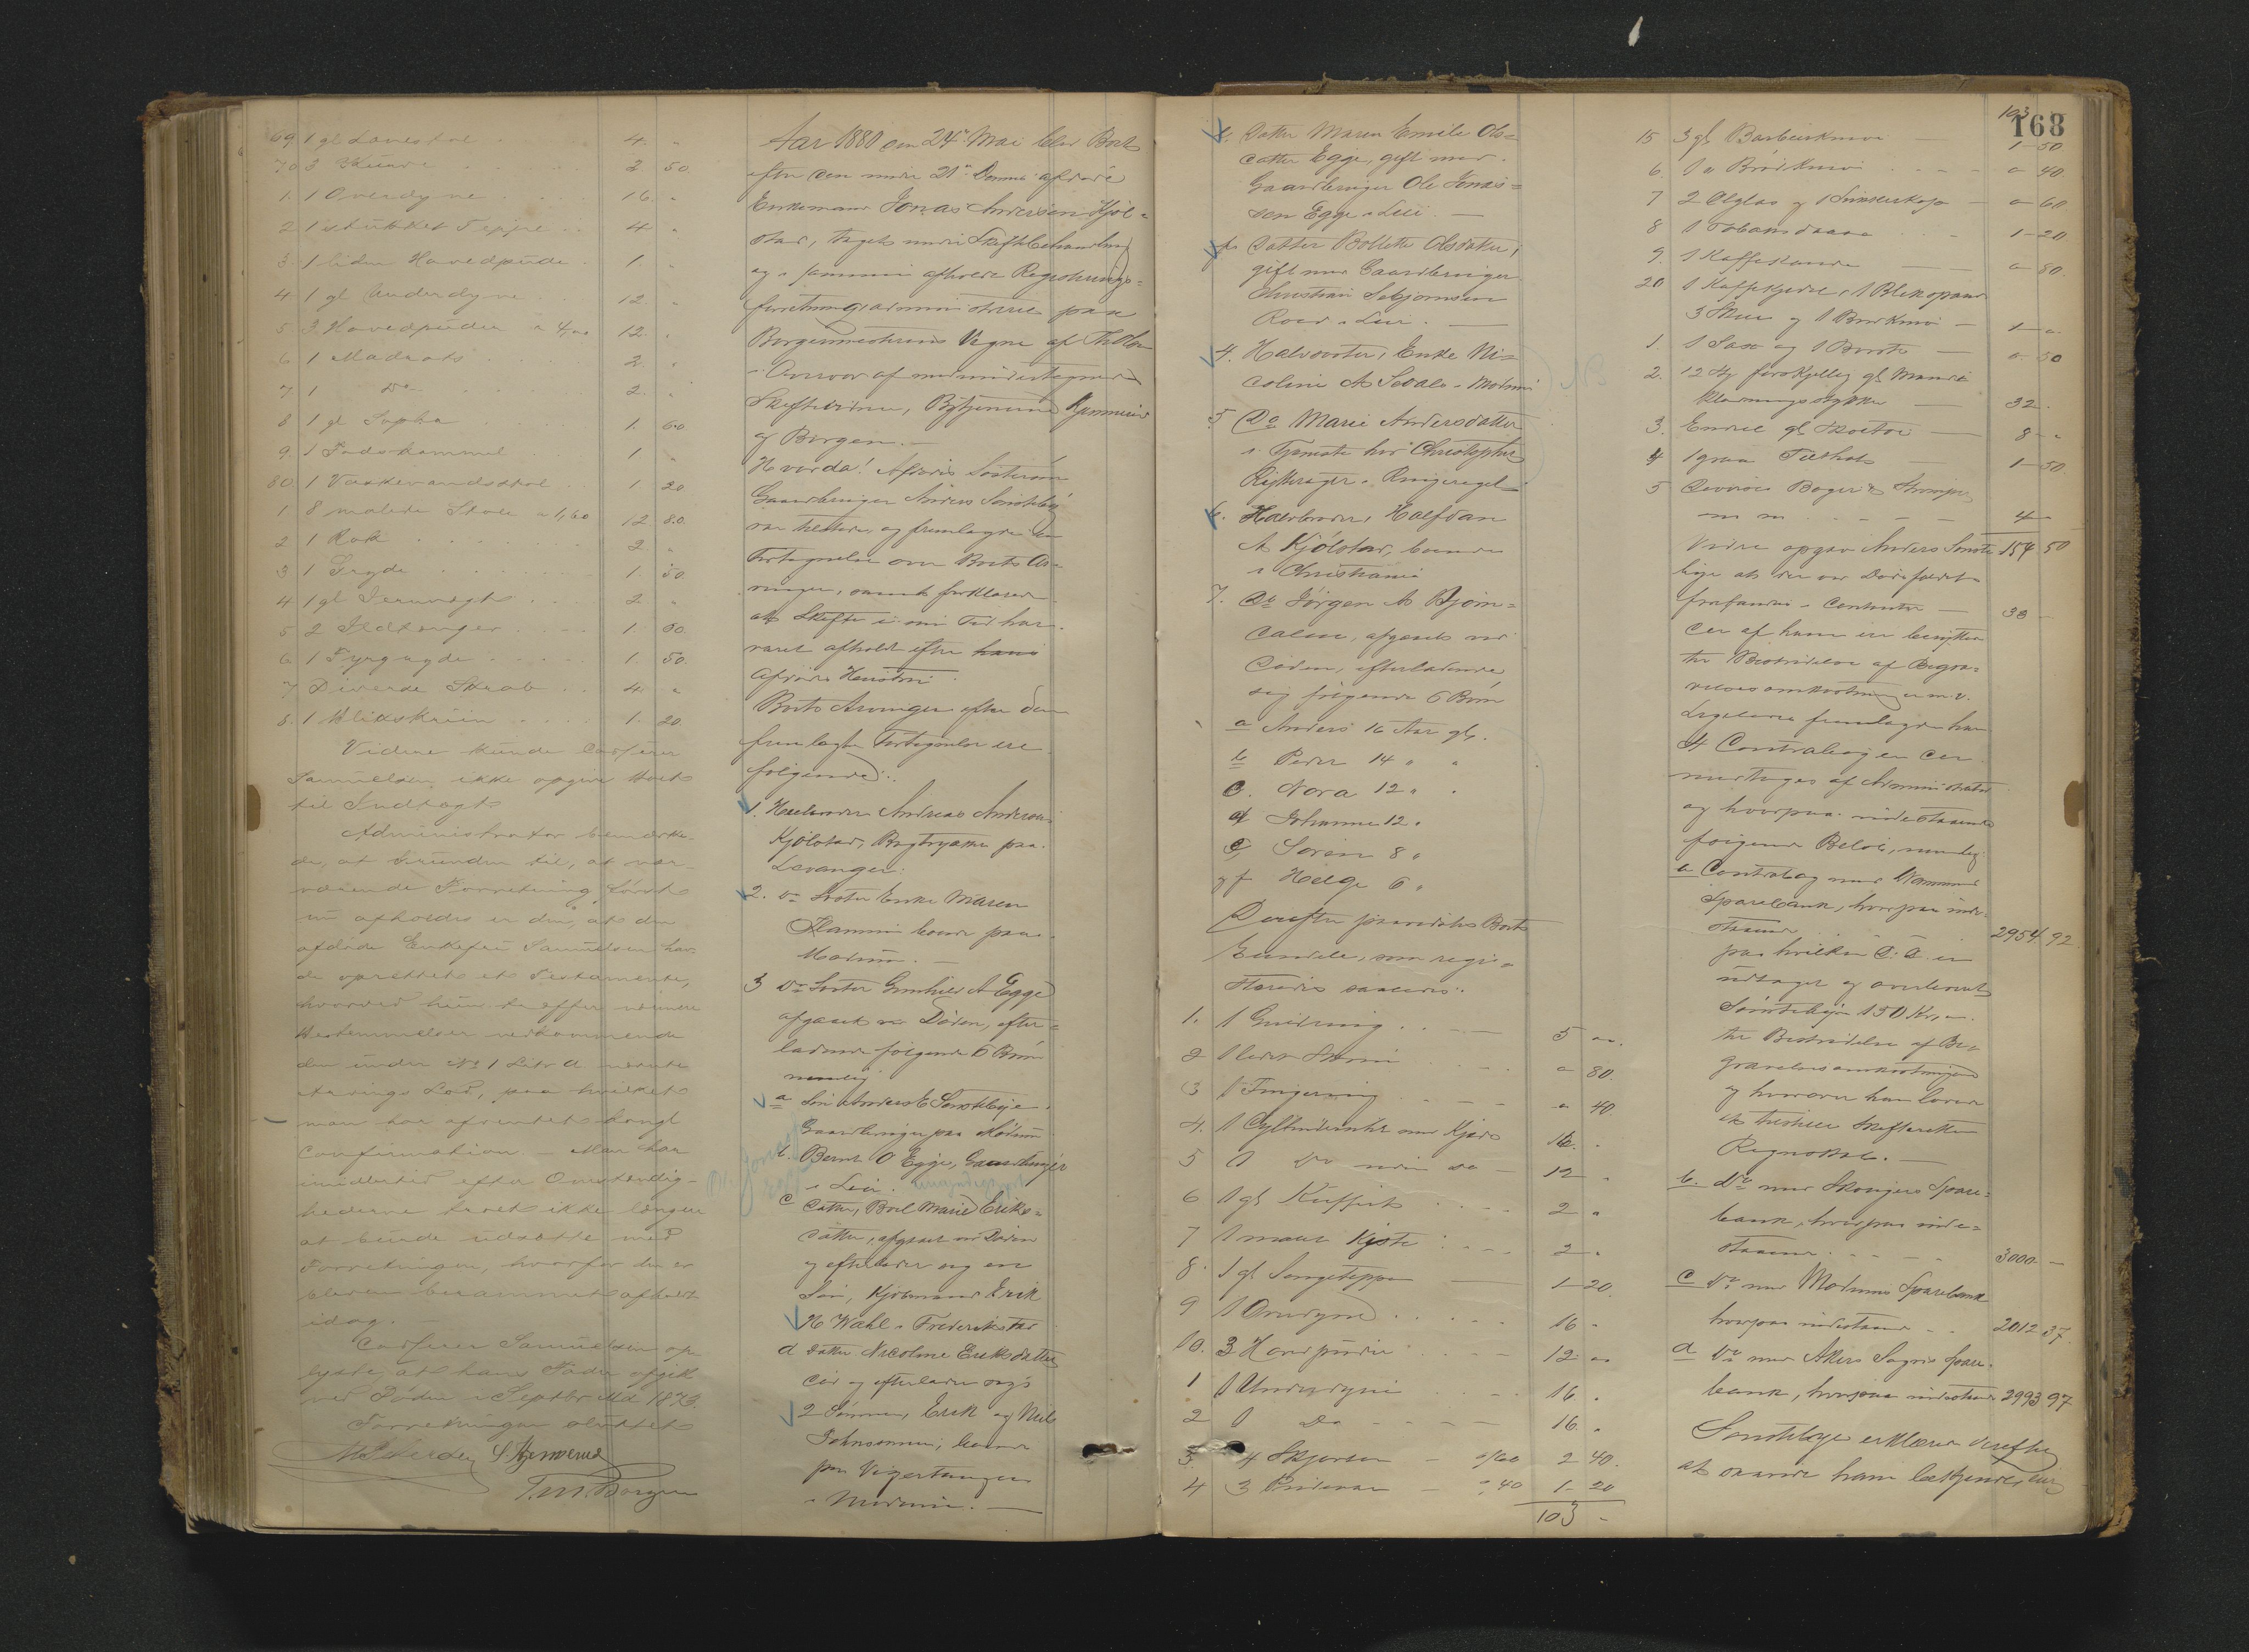 69 1 gl Lænestol 4. "
70 3 2. 50.
1. 1 Overdyne 16. "
2 1 stukket Teppe 4 "
3. 1 liden Hovedpude 1. "
4 1 gl Underdyne 12. "
5 3 Hovedpuder a 4,00 12. "
6 1 Madrats 2. "
7 1 Do 2. "
8 1 gl Sopha 1. 60
9. 1 Fodskammel 1 "
80. 1 Vaskevandsstol 1. 20
1 8 malede Stole a 1,60 12 80.
2 1 Rok 2 "
3 1 Gryde 1. 50.
4 1 gl 2. "
5 2 Ildtænger 1. 60
6 1 Fyrgryde 1. 50.
7 Diverse Skrab 4 "
8. 1 Blikskrin 1. 20
Videre kunde
Samuelsen ikke opgive Boet
til Indtægt
Administrator bemærke-
de, at Grunden til, at nær-
værende Forretning først
nu afholdes er den, at den
afdøde Enkefru Samuelsen hav-
de oprettet et Testamente,
hvorved hun
Bestemmelser vedkommende
den under No 1 Litr a nævnte
Arvings Lod, paa hvilket
man har afventet kongl
Confirmation. – Man har
imidlertid efter Omstændig-
hederne troet ikke længere
at burde udsætte med
Forretningen, hvorfor den er
bleven berammet afholdt
idag. –
Samuelsen op-
lyste, at hans Fader afgik
ved Døden i Septbr Md 1873.
Forretningen sluttet
S Hjemmerud
T. M. Borgen
Aar 1880 den 24de Mai blev Boet
efter den under 21de Dennes afdøde
Enkemand Jonas Andersen Kjøl=
stad, taget under Skiftebehandling
og i sammen afholdt Registrerings=
forretning administreret paa
Borgermesterens Vegne af
i Overvær af medundertegnede
Skiftevidner, Hjemmerud
og Borgen. –
Hvorda! Afdødes Søstersøn
Gaardbruger Anders Sønsteby
var tilstede og fremlagde en
Fortegnelse over Boets Ar-
vinger, samt forklarede
at Skifte i sin Tid har
været afholdt efter hans
Afdødes Hustru.
Boets Arvinger efter den
fremlagte Fortegnelse ere
følgende:
1. Halvbroder Andreas Andersen
Kjølstad, Bogtrykker paa
Levanger.
2. Do Søster Enke Maren
Flannum boende paa
Modum. –
3 Do Søster Gunhild A Egge
afgaaet ved Døden, efter=
ladende følgende 6 Børn
nemlig
a Søn Anders E Sønsteby,
Gaardbruger paa Modum
b. Bernt O Egge, Gaardbruger
i Lier.
c Datter, Boel Marie Eriks=
datter, afgaaet ved Døden
og efterlader sig en
Søn, Kjøbmand Erik
H Wahl i Frederikstad
d Datter Nicoline Eriksdatter
død og efterlader sig
2 Sønner, Erik og Nils
Johnsønner, boende
paa Vigertangen
i Modum. –
e. Datter Maren Emilie Ols=
datter Egge, gift med
Gaardbruger Ole Jonas=
sen Egge i Lier. –
f. Datter Bollette Olsdatter,
gift med Gaardbruger
Christian Sebjørnsen
Roed i Lier. –
4. Halvsøster, Enke Ni=
coline A Sevale i Modum
5 Do Marie Andersdatter
i Tjeneste hos Christopher
i Ringerige
6. Halvbroder, Halfdan
A Kjølstad, boende
i Christiania
7. Do Jørgen A Bjørn=
dalen, afgaaet ved
Døden, efterladende
sig følgende 6 Børn
a Anders 16 Aar gl.
b Peder 14 " "
c. Nora 12 " "
d Johanne 12 "
e Søren 8 "
og f Helge 6 "
Derefter foranstaltes Boets
Eiendele, som regi=
streredes saaledes:
1. 1 Guldring 5 "
2 1 " 80.
3 1 Fingerring " 40
4. 1 Cylinderuhr med Kjæde 16. "
5 1 Do uden do 12 "
6 1 gl Kuffert 2 "
7 1 malet Kiste 2 "
8. 1 gl Sengeteppe 1 – 20.
9 1 Overdyne 16 "
10. 3 Hovedpuder 12 "
1 1 Underdyne 16 "
2 1 Do 16. "
3. 4 Skjorter a/60 2 40.
4 3 " 40 1 – 20
103 –
103
168
15 3 gl Barbeerknive 1 – 50
6. 1 Brødkniv " 40
7 2 Ølglas og 1 " 60
8 1 Tobaksdaase 1 – 20
9. 1 Kaffekande " 80.
20 1 Kaffekjedel, 1 Blikspand
3 Skeer og 1 Brødkniv 1 – "
1. 1 Sax og 1 Børste " 50
2. 12 Stk forskjellig gl Mands
klædningsstykker 32 –
3. Endel gl Skotøi 8 – "
4 1 graa Filthat 1 – 50.
5 Diverse Bøger
m m 4 –
154 50
Videre opgav Anders Sønste=
bye at der ved Dødsfaldet
forefandtes i Contanter 38 –
der af ham er benyttet
til Bestridelse af Begra=
velsesomkostninger m. v.
Ligeledes fremlagde han
4 Contrabøger der
modtoges af Administrator
og hvorpaa indestaaende
følgende Beløb, nemlig:
a Contrabog med
Sparebank, hvorpaa inde=
staaende 2954 92
paa hvilken D. D. er
udtaget og overleveret
Sønsteby 150 Kr,
til Bestridelse af Be=
gravelsesomkostninger
og hvorover han lover
at tilstille Skifteretten
Regnskab. –
b. Do med Skouger Spare=
bank, hvorpaa inde=
staaende 3000 –
c Do med Modums Sparebank
hvorpaa indestaaende 2012 37.
d Do med Akers Sogns Spare=
bank, hvorpaa indestaaende 2993 97
Sønstebye erklærer derefter
at saavidt ham bekjendt, eier